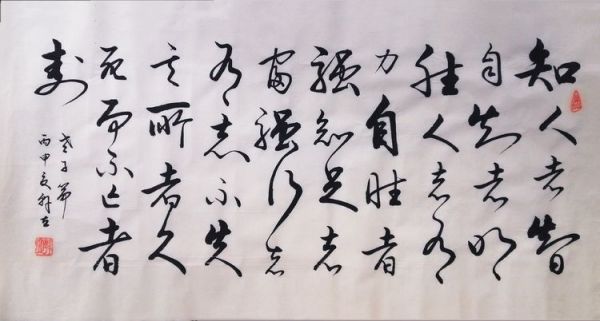 知人者智
自知者明
胜人者有
力自胜者
强知足者
富强行者
有志不失
其所者久
死而不亡者
寿
老子
丙申